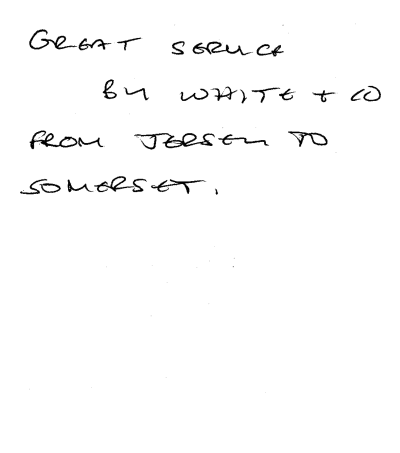 GREAT SERVICE
BY WHITE + CO
FROM JERSEY TO
SOMERSET.